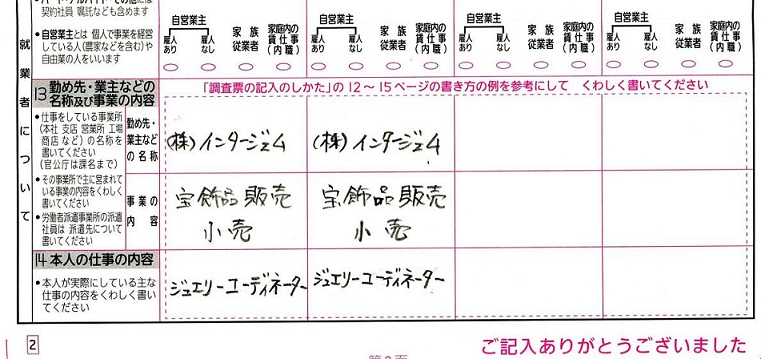 契約社員 嘱託なども含めます
●自営業主とは 個人で事業を経営
している人(農家などを含む)や
自由業の人をいいます
自営業主
雇人あり
雇人なし
家族従業者
家庭内の賃仕事(内職)
自営業主
雇人あり
雇人なし
家族従業者
家庭内の賃仕事(内職)
自営業主
雇人あり
雇人なし
家族従業者
家庭内の賃仕事(内職)
自営業主
雇人あり
雇人なし
家族従業者
家庭内の賃仕事(内職)
就業者について
13 勤め先・業主などの
名称及び事業の内容
「調査票の記入のしかた」の12〜15ページの書き方の例を参考にして くわしく書いてください
●仕事をしている事業所
(本社 支店 営業所 工場
商店 など) の名称を
書いてください
(官公庁は課名まで)
勤め先・
業主など
の名称
(株)インタージェム
(株)インタージェム
●その事業所で主に営まれて
いる事業の内容をくわしく
書いてください
●労働者派遣事業所の派遣
社員は 派遣先について
書いてください
事業の
内容
宝飾品販売
小売
宝飾品販売
小売
14 本人の仕事の内容
●本人が実際にしている主な
仕事の内容をくわしく書い
てください
ジュエリーコーディネーター
ジュエリーコーディネーター
2
ご記入ありがとうございました